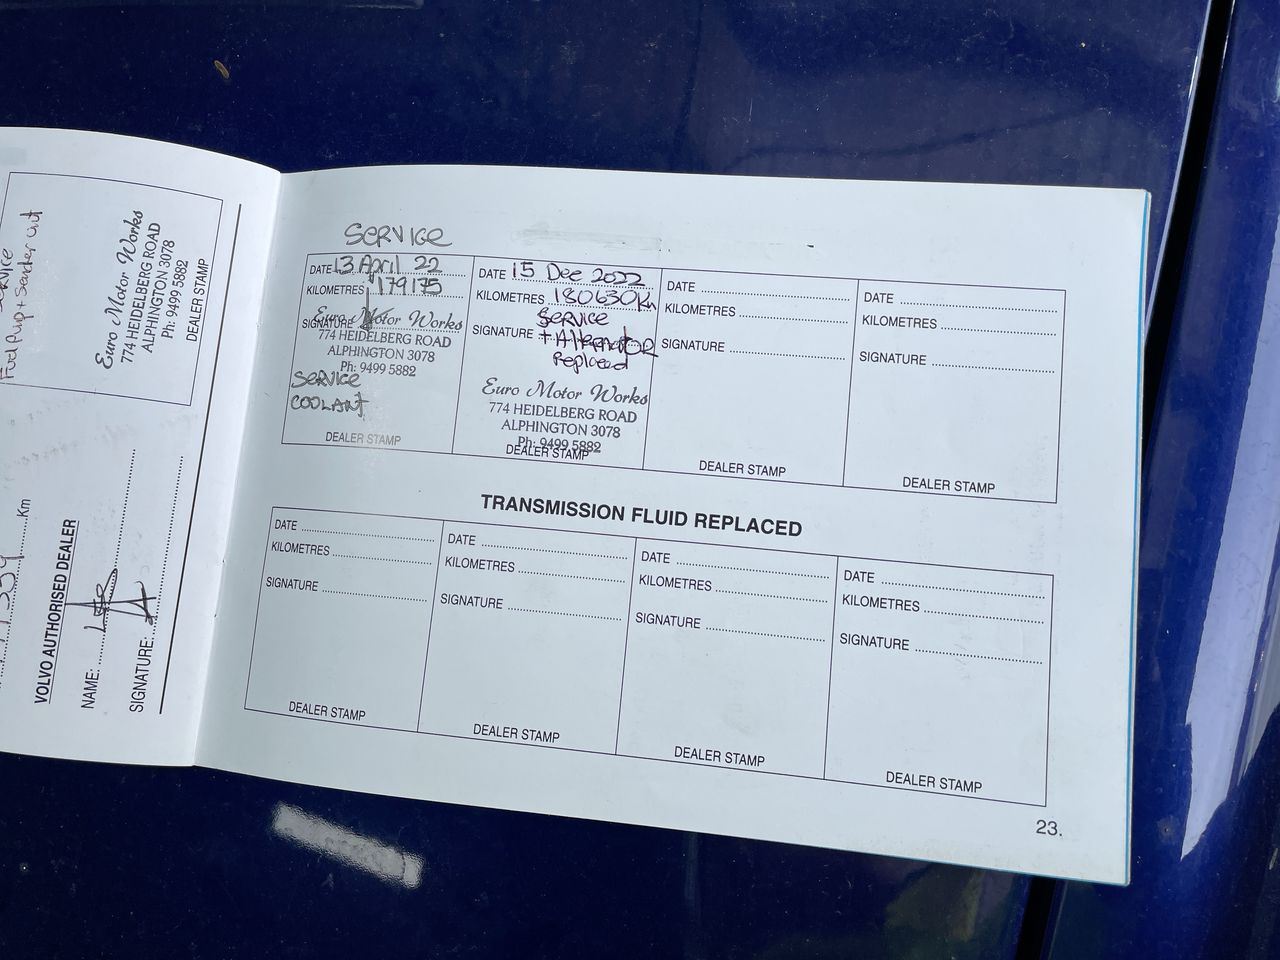 Fuel Pump + Sender unit
Euro Motor Works
774 HEIDELBERG ROAD
ALPHINGTON 3078
Ph: 9499 5882
DEALER STAMP
Km
VOLVO AUTHORISED DEALER
NAME:
SIGNATURE:
SERVICE
DATE 13 April 22
KILOMETRES 179175
SIGNATURE
Euro Motor Works
774 HEIDELBERG ROAD
ALPHINGTON 3078
Ph: 9499 5882
SERVICE
COOLANT
DEALER STAMP
DATE 15 Dec 2022
KILOMETRES 180630Km
Service
SIGNATURE + Alternator
Replaced
Euro Motor Works
774 HEIDELBERG ROAD
ALPHINGTON 3078
Ph: 9499 5882
DEALER STAMP
DATE
KILOMETRES
SIGNATURE
DEALER STAMP
DATE
KILOMETRES
SIGNATURE
DEALER STAMP
TRANSMISSION FLUID REPLACED
DATE
KILOMETRES
SIGNATURE
DEALER STAMP
DATE
KILOMETRES
SIGNATURE
DEALER STAMP
DATE
KILOMETRES
SIGNATURE
DEALER STAMP
DATE
KILOMETRES
SIGNATURE
DEALER STAMP
23.